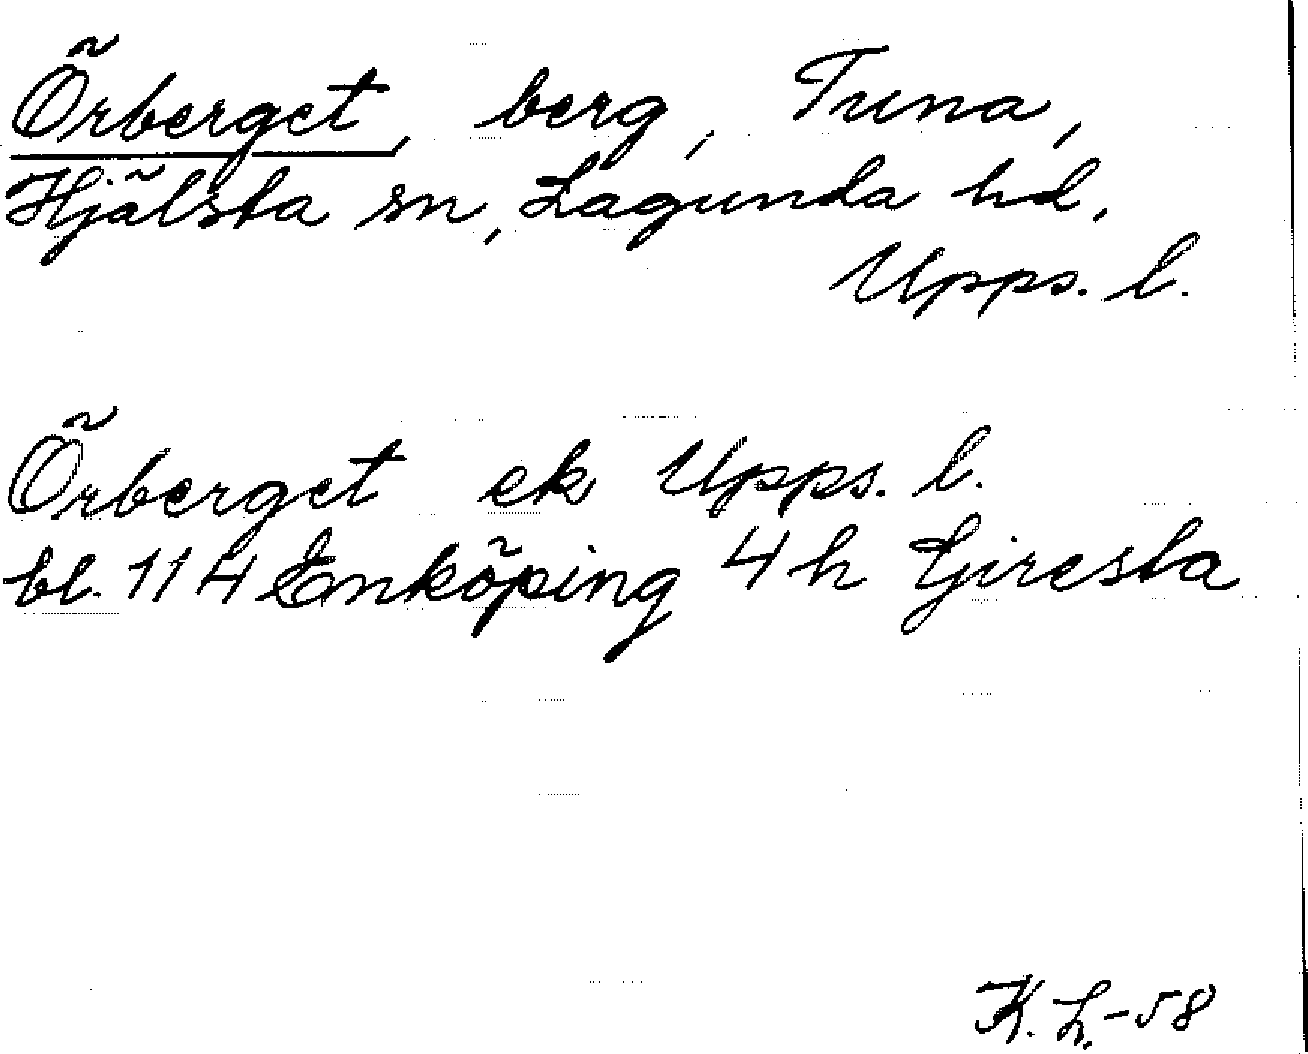 Örberget, berg, Tuna,
Hjälsta sn, Lagunda hd,
Upps. l.
Örberget ek Upps. l.
bl. 114 Enköping 4h Giresta
K. L. -58